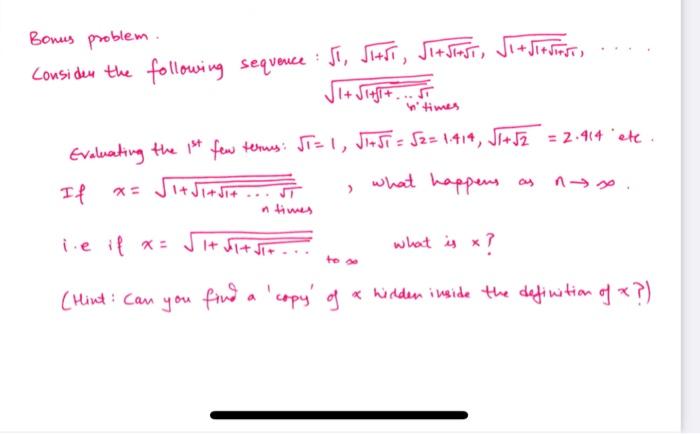 Bonus problem.
Consider the following sequence : √1, √(1+√1), √(1+√(1+√1)), √(1+√(1+√(1+√1))), .....
√(1+√(1+√(1+...√1))) 'n' times
Evaluating the 1st few terms: √1 = 1, √(1+√1) = √2 = 1.414, √(1+√2) = 2.414 etc.
If x = √(1+√(1+√(1+ ... √1))) n times , what happens as n → ∞.
i.e if x = √(1+√(1+√(1+... to ∞ what is x?
(Hint: Can you find a 'copy' of x hidden inside the definition of x?)